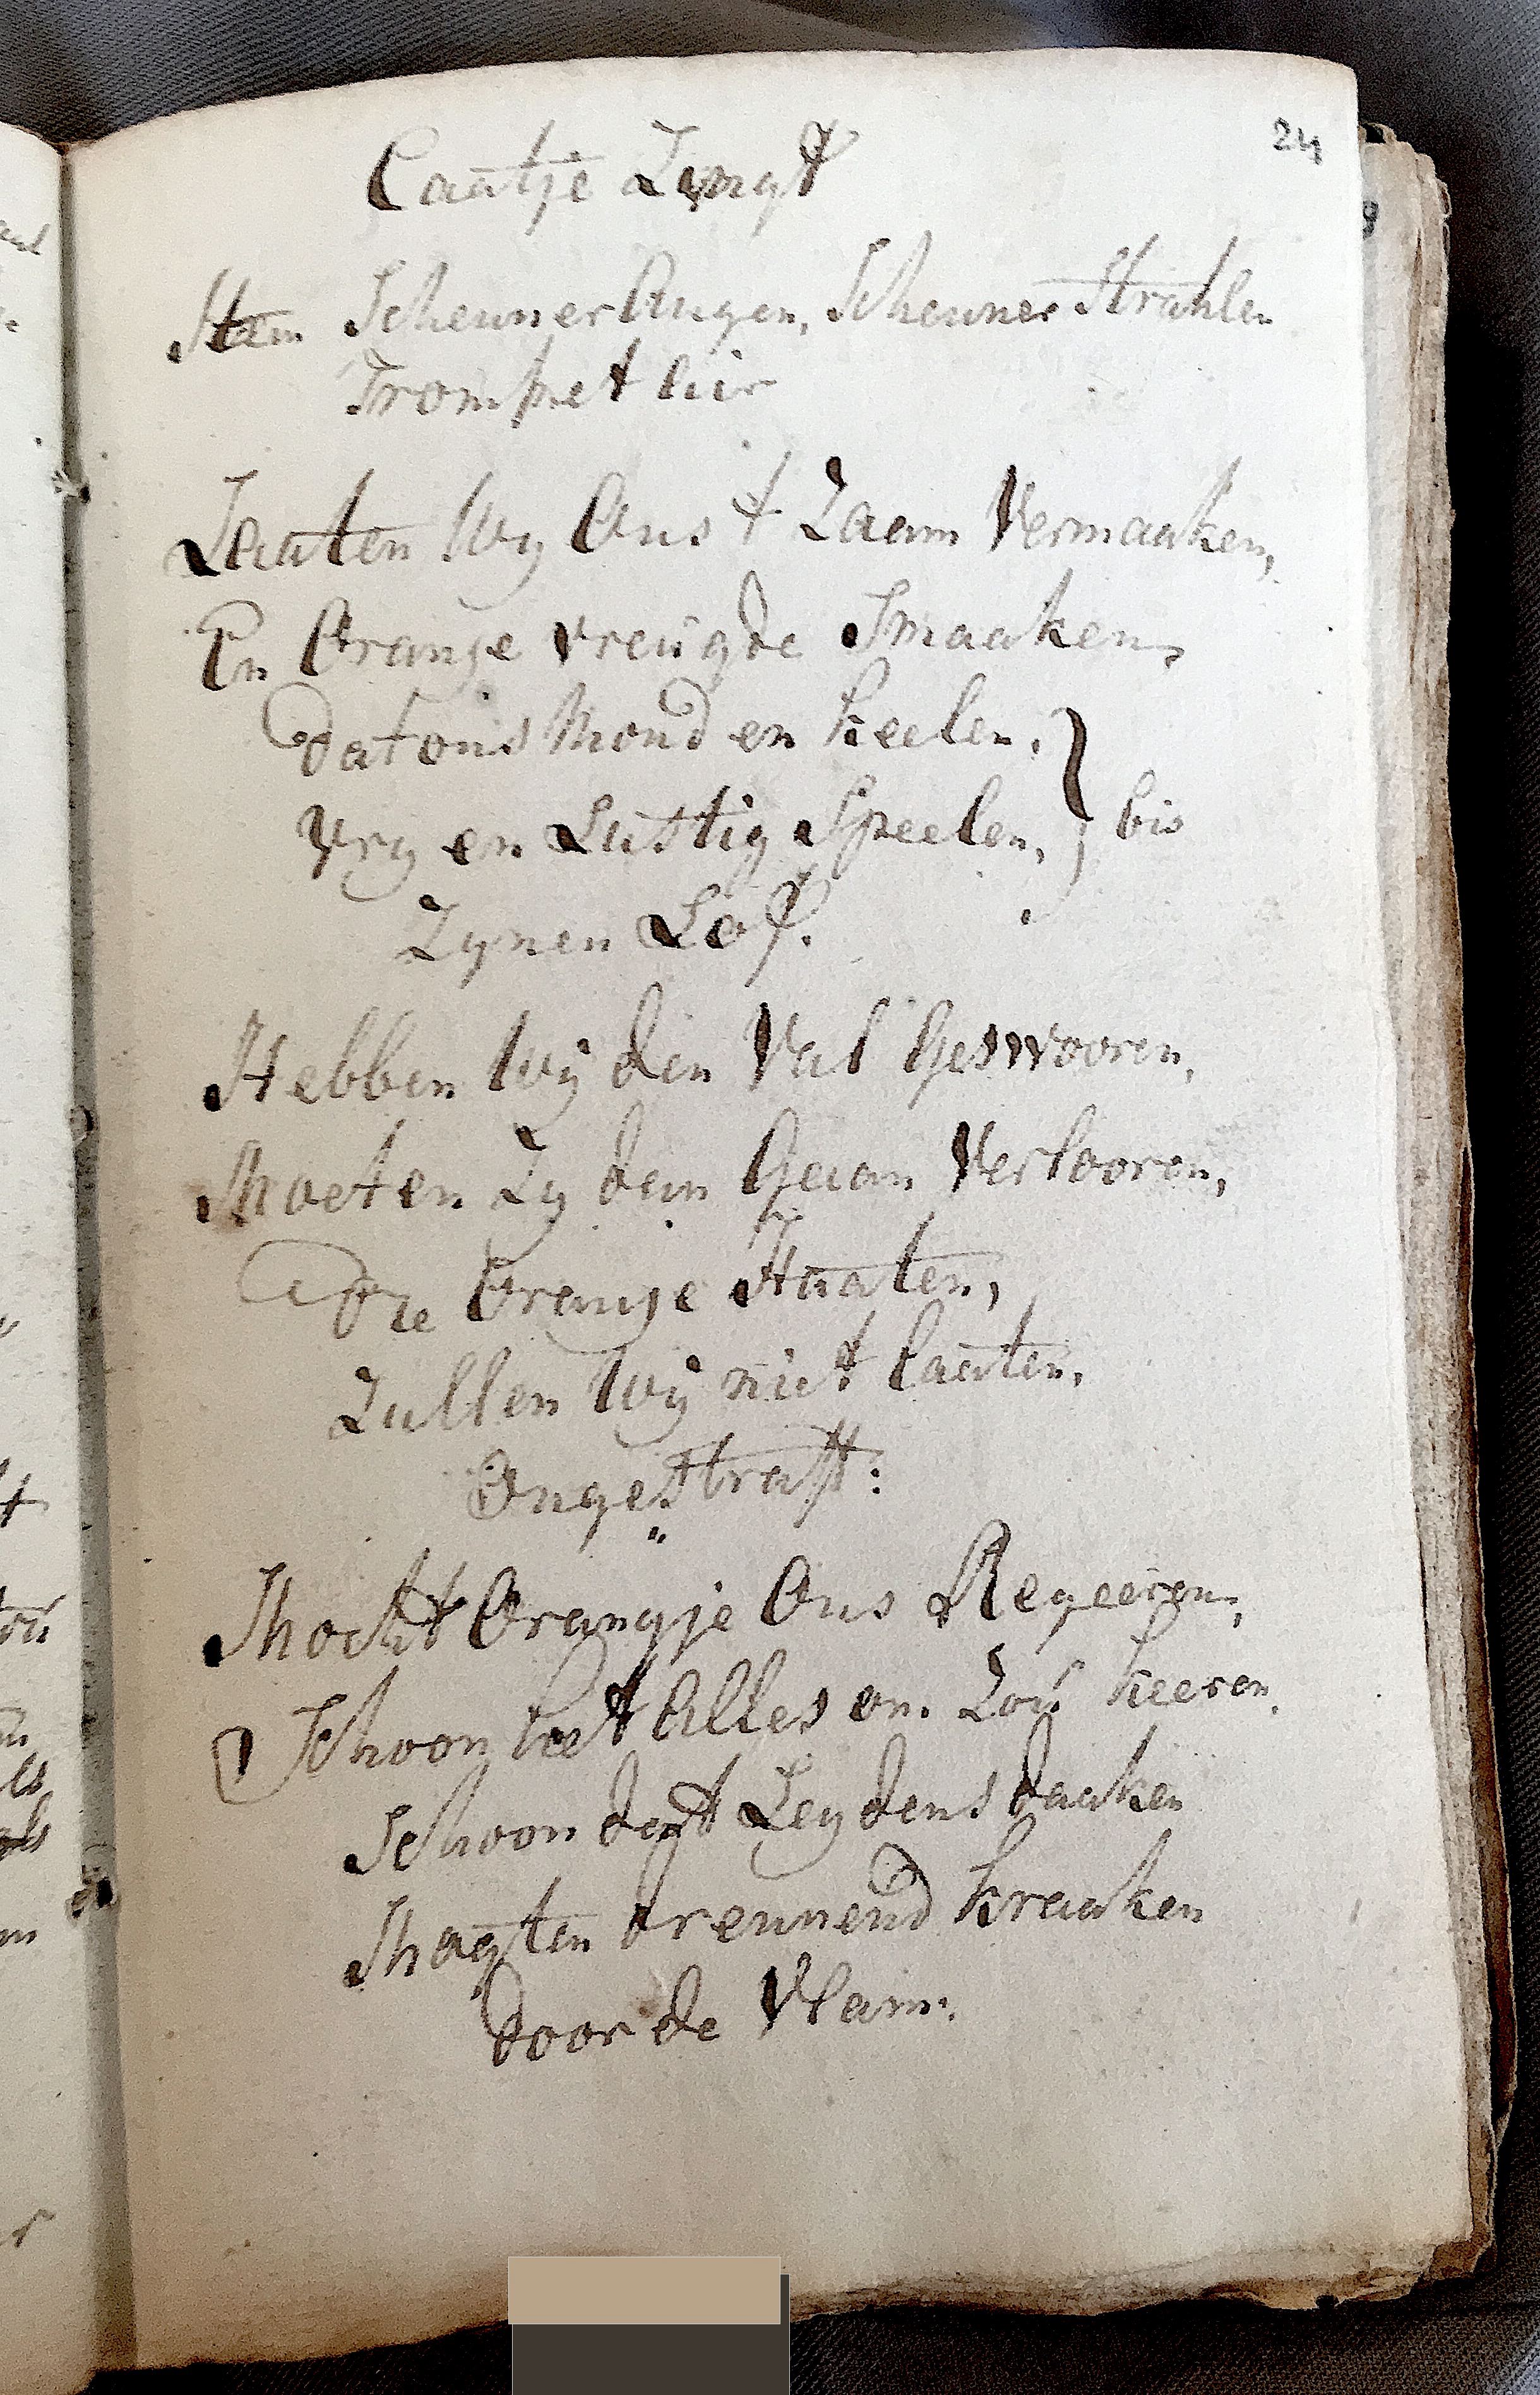 24
Caatje Zingt
Stem Scheuner Augen, Scheuner Strahlen
Trompet lier
Laaten Wy Ons t Zaam Vermaaken,
En Oranje vreugde Smaaken,
Dat ons Mond en Keelen, } bis
Vry en Lustig Speelen,
Zynen Lof.
Hebben Wij den Val Geswooren,
Moeten Zy dan Gaan Verlooren,
Die Oranje Haaten,
Zullen Wij niet laaten,
Ongestraft:
Mocht Orangje Ons Regeeren,
Schoon het Alles om Zoú keeren,
Schoon dat Leydens daaken
Magten brennend kraaken
door de Vlam.